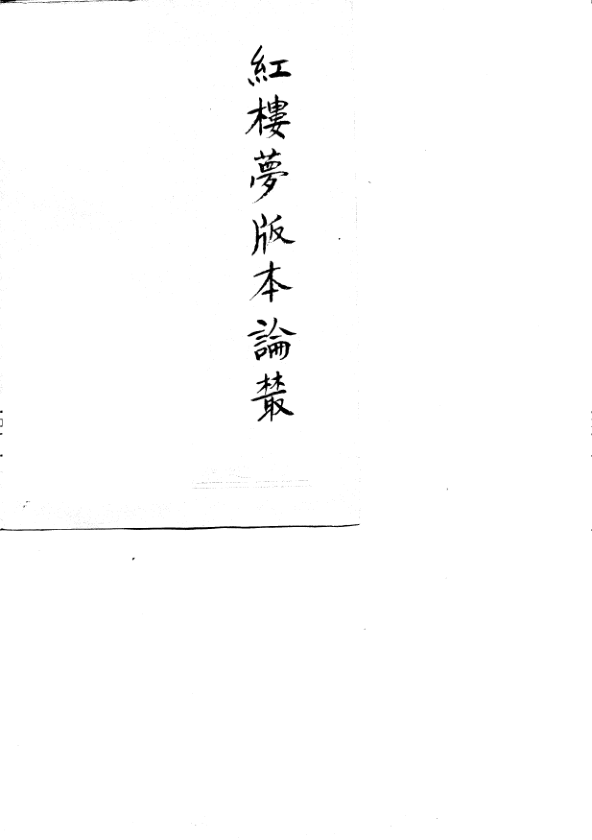 紅樓夢版本論叢